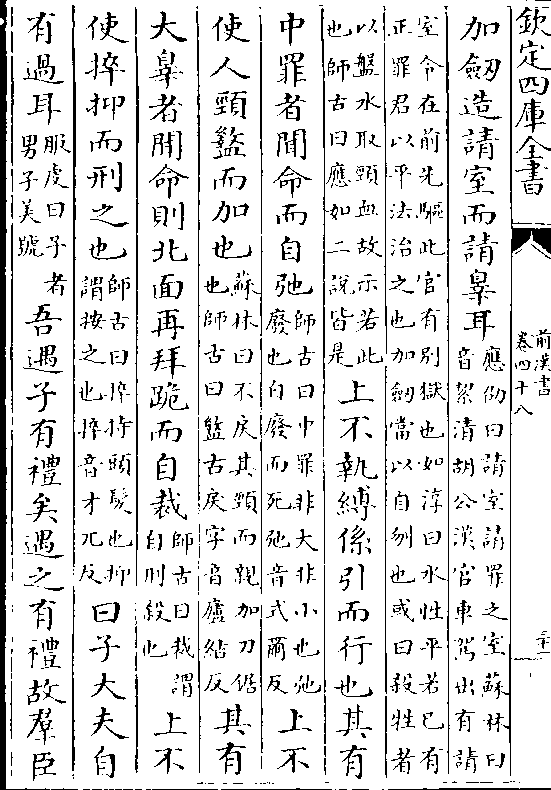 欽定四庫全書
前漢書
卷四十八
二十一
加劒造請室而請辠耳應劭曰請室請罪之室蘇林曰
音絜清胡公漢官車駕出有請
室令在前先驅此官有別獄也如淳曰水性平若已有
正罪君以平法治之也加劒當以自刎也或曰殺牲者
以盤水取頸血故示若此
也師古曰應如二說皆是上不執縛係引而行也其有
中罪者聞命而自弛師古曰中罪非大非小也弛
廢也自廢而死弛音式爾反上不
使人頸盭而加也蘇林曰不戾其頸而親加刀鋸
也師古曰盭古戾字音廬結反其有
大辠者聞命則北面再拜跪而自裁師古曰裁謂
自刑殺也上不
使捽抑而刑之也師古曰捽持頭髮也抑
謂按之也捽音才兀反曰子大夫自
有過耳服虔曰子者
男子美號吾遇子有禮矣遇之有禮故羣臣